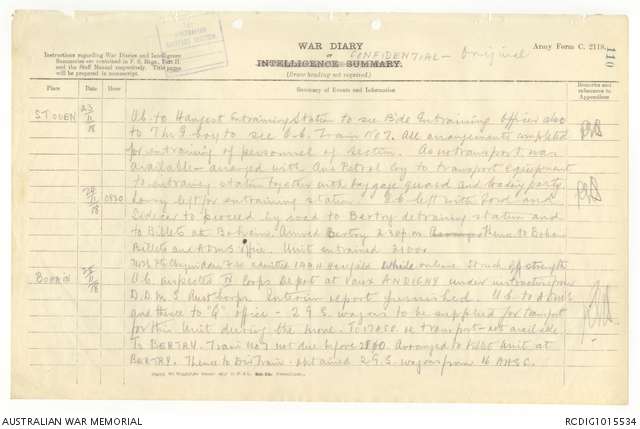 WAR DIARY
or
INTELLIGENCE SUMMARY.
CONFIDENTIAL - Original
Army Form C. 2118.
110
Instructions regarding War Diaries and Intelligence
Summaries are contained in F. S. Regs., Part II
and the Staff Manual respectively. Title pages
will be prepared in manuscript.
(Erase heading not required.)
Place
Date
Hour
Summary of Events and Information
Remarks and
references to
Appendices
ST. OUEN 23/11/18 O.C. to Hangest Entraining Station to see Bde Entraining Officer also
to see O.C. Train No 7. All arrangements completed
for entraining of personnel of Section. As no transport was
available - arranged with Aus Petrol Coy to transport equipment
to entraining station together with baggage guard and loading party
24/11/18 0830 Lorry left for entraining station. O.C. left with Ford and
Sidecar to proceed by road to Bertry detraining station and
to Billets at Bohain. Arrived Bertry 2.30 p.m. thence to Bohain
Billets and ADMS office. Unit entrained 2100
on leave. Struck off strength
BOHAIN 25/11/18 O.C. inspected Corps Depot at VAUX ANDIGNY under instructions from
D.D.M.S. Aust Corps. Interim report furnished. O.C. to ADMS
and thence to "Q" office - 2 G.S. wagons to be supplied for transport
for this Unit during the move. To transport - not available
To BERTRY. Train No 7 not due before Arranged to Unit at
BERTRY. Thence to Div Train - obtained 2 G.S. wagons from 16 AASC.
AUSTRALIAN WAR MEMORIAL
RCDIG1015534